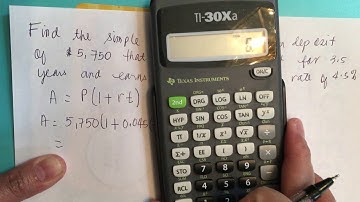 Find the simple
TI-30Xa
n deposit
of $5,750 that
for 3.5
years and earns
TEXAS INSTRUMENTS
ON/C
rate of 4.5%
A = P(1+rt)
2nd DRG LOG LN OFF
A = 5,750(1+0.045
HYP SIN COS TAN yˣ
=
π 1/x x² √x ÷
Σ+ EE ( ) ×
STO 7 8 9
RCL 4 5 6